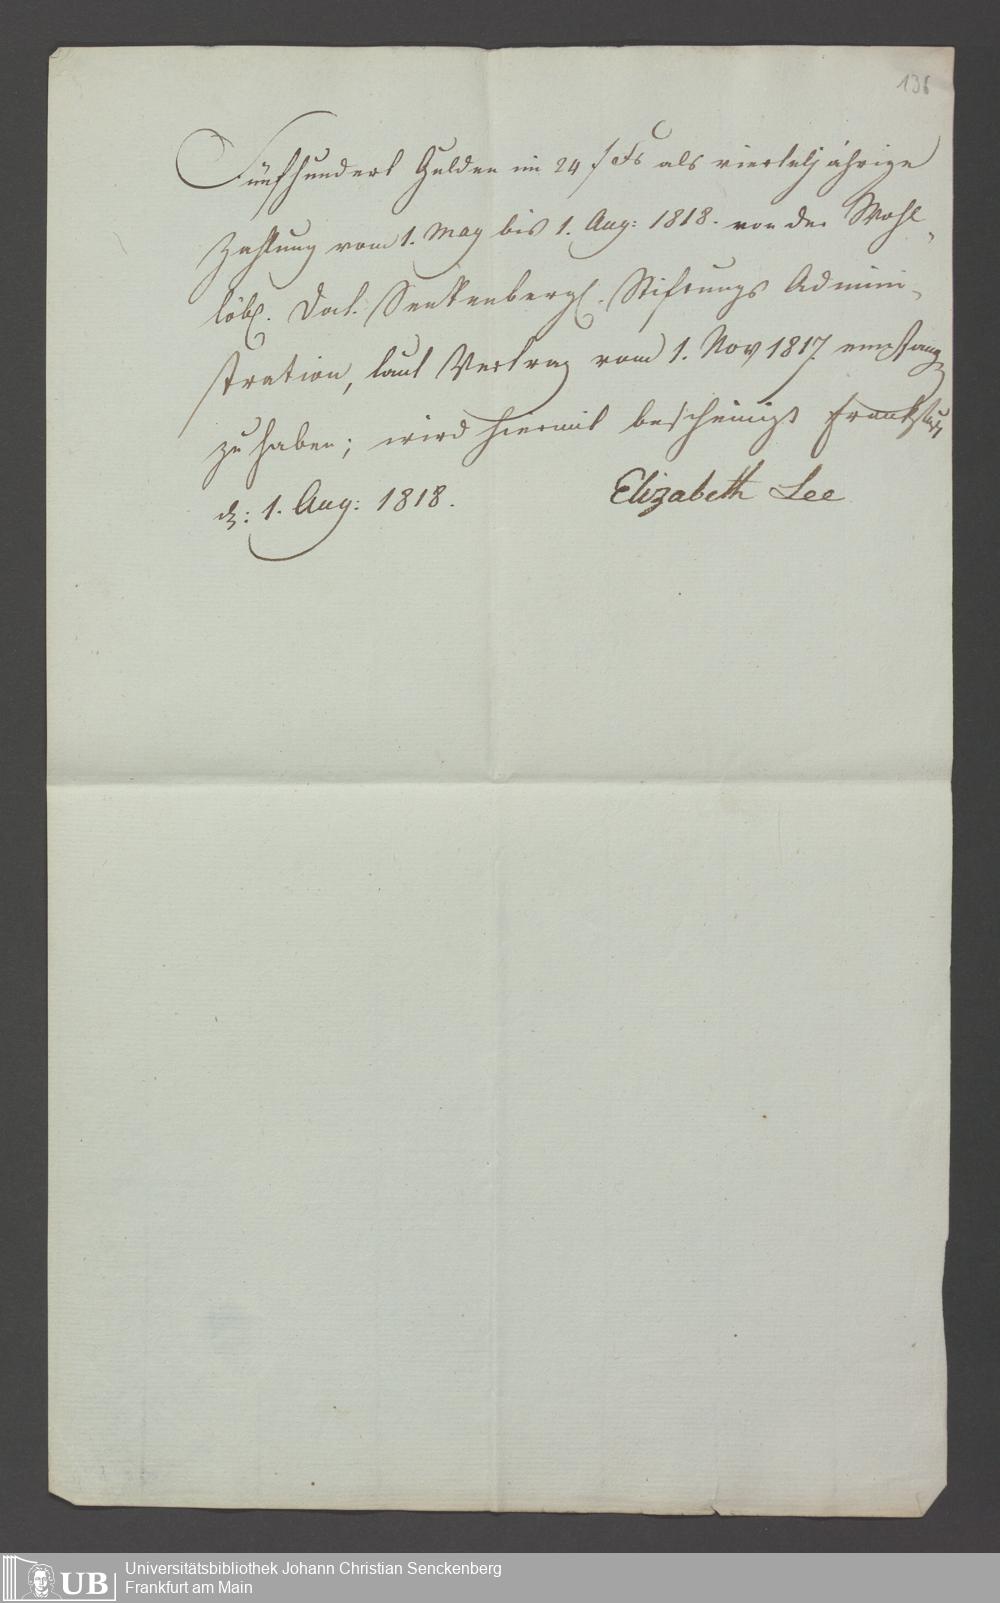 136
Fünfhundert Gulden im 24 f als vierteljährige
Zahlung vom 1. May bis 1. Aug: 1818. von der Wohl„
löbl. Doct. Senkenbergl. Stiftungs Admini„
stration, laut Vertrag vom 1. Nov 1817 empfang
zu haben; wird hiermit bescheinigt Frankfurt
d: 1. Aug: 1818. Elizabeth Lee
UB Universitätsbibliothek Johann Christian Senckenberg
Frankfurt am Main